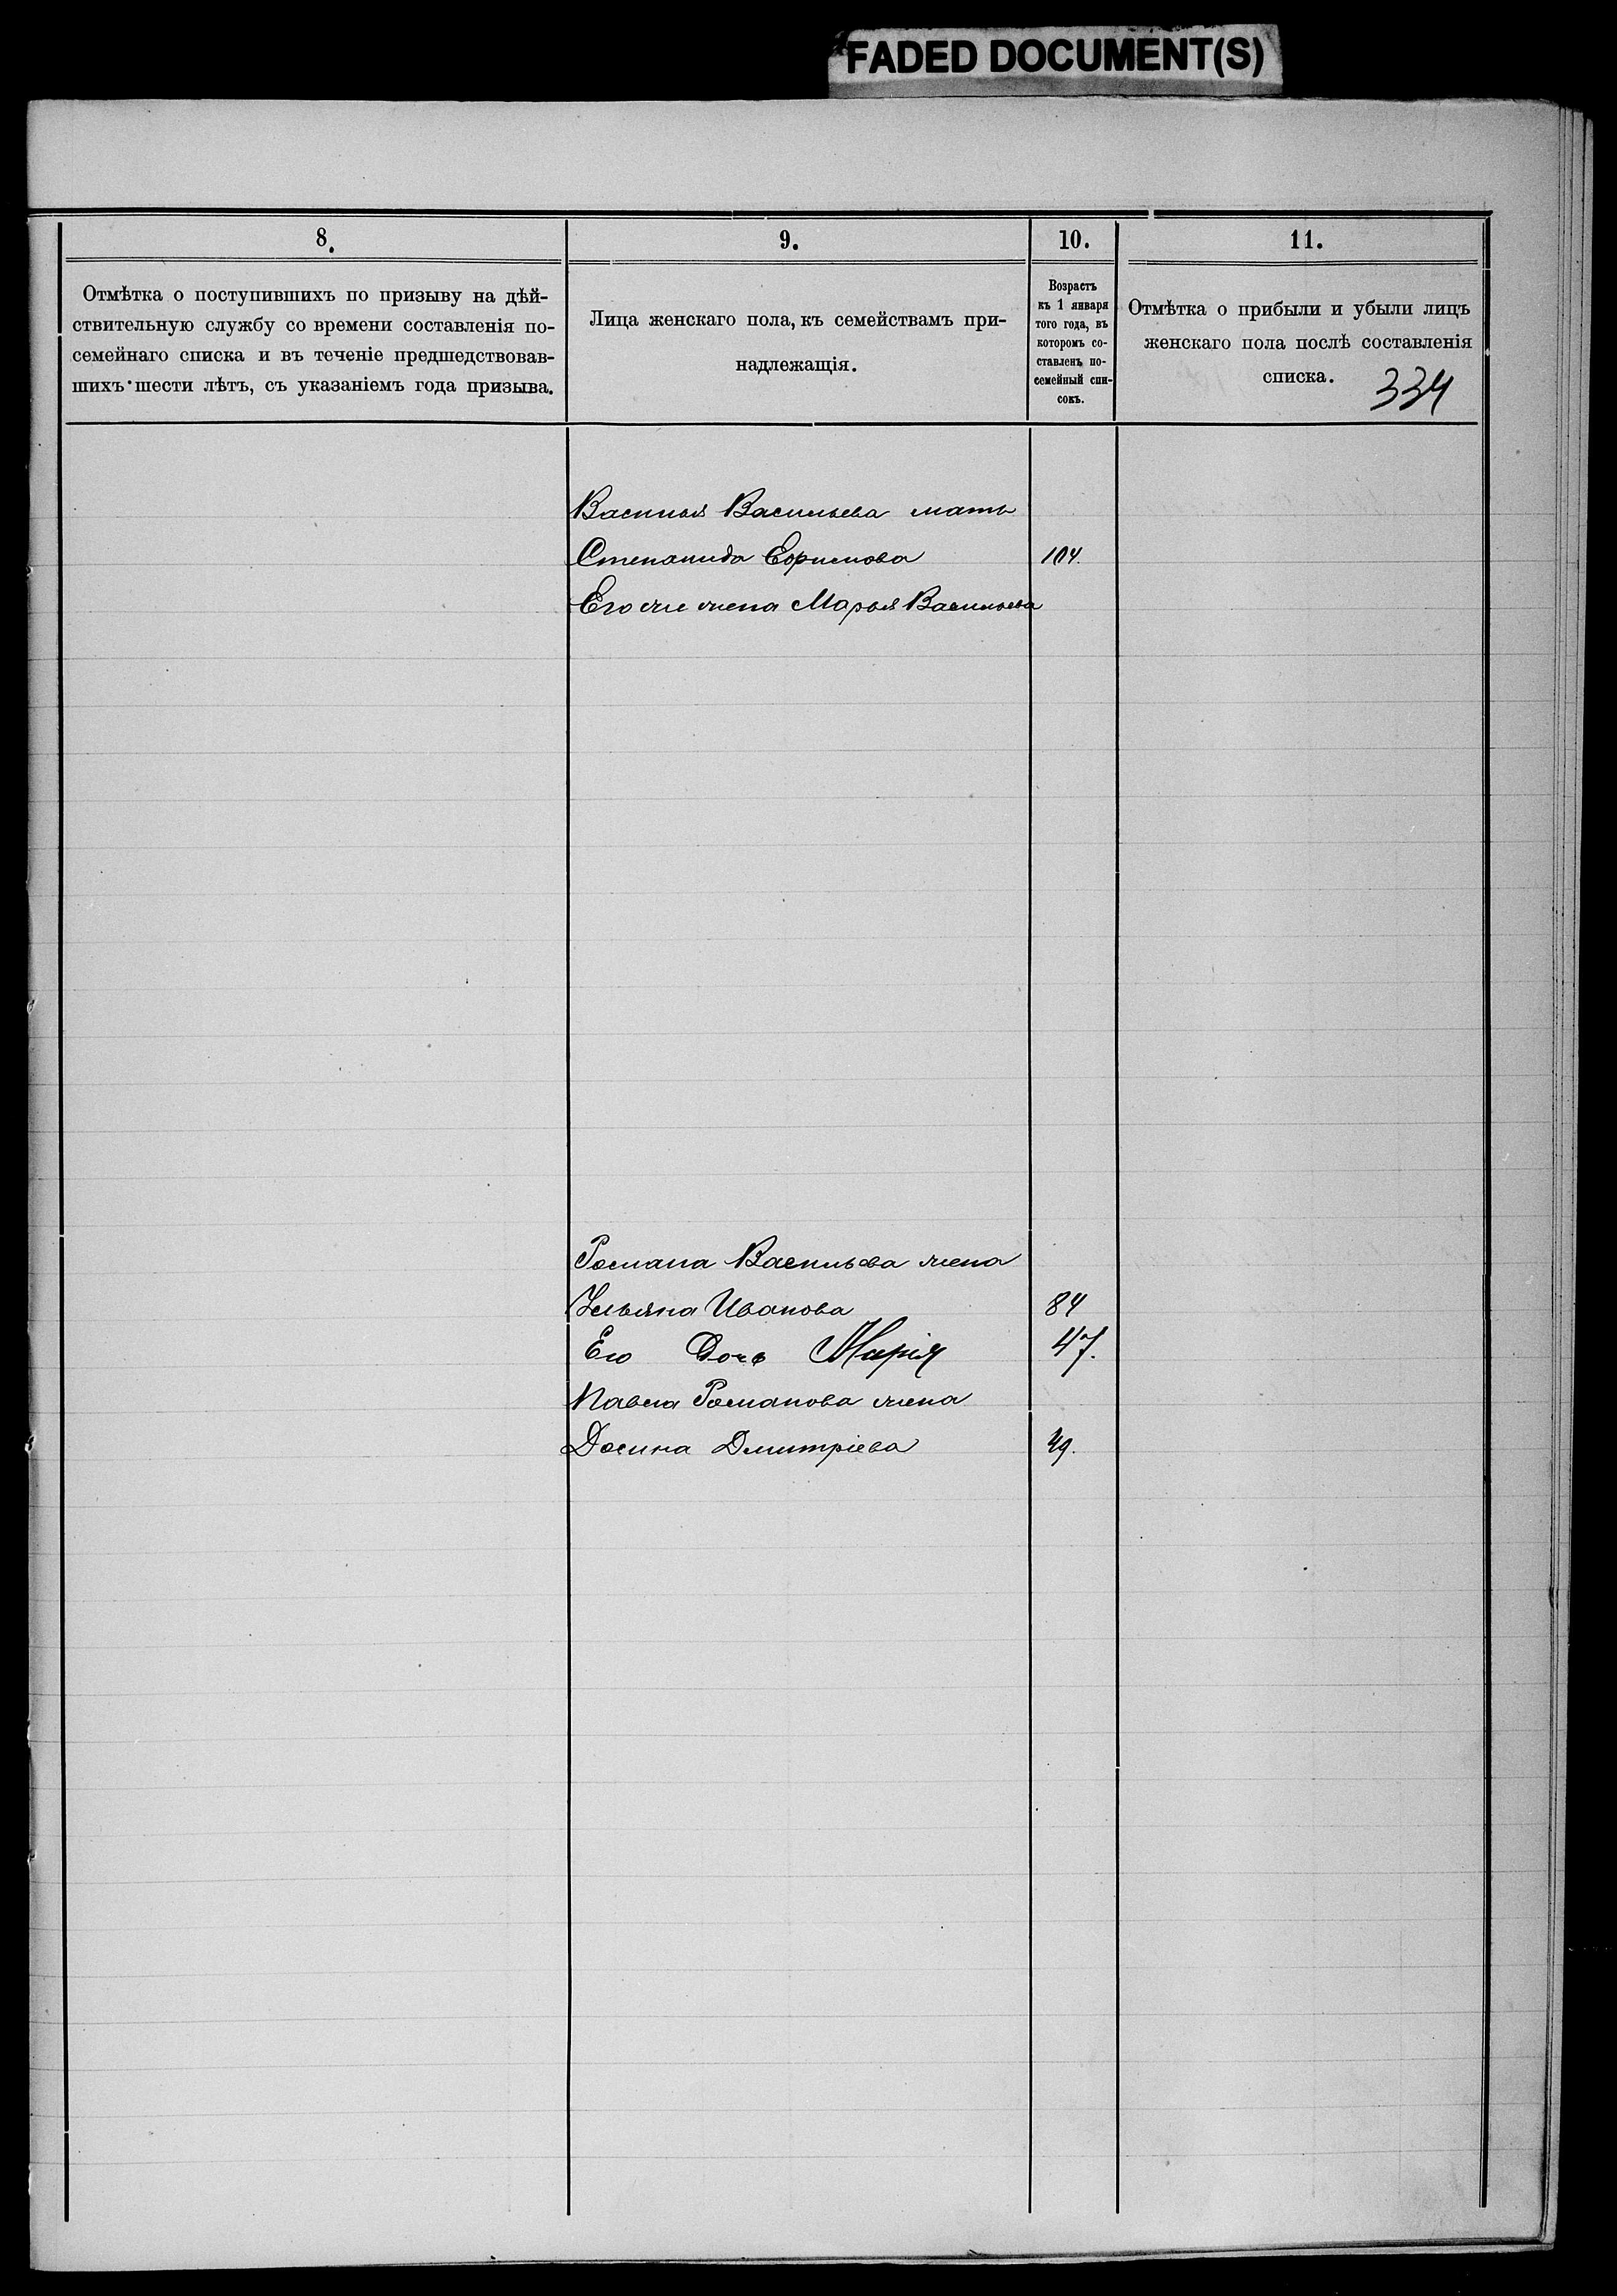 FADED DOCUMENT(S)
8.
Отмѣтка о поступившихъ по призыву на дѣй-
ствительную службу со времени составленія по-
семейнаго списка и въ теченіе предшедствовав-
шихъ шести лѣтъ, съ указаніемъ года призыва.
9.
Лица женскаго пола, къ семействамъ при-
надлежащія.
10.
Возрастъ
къ 1 января
того года, въ
которомъ со-
ставленъ по-
семейный спи-
сокъ.
11.
Отмѣтка о прибыли и убыли лицъ
женскаго пола послѣ составленія
списка.
334
Василья Васильева мать
Степанида 104.
Его же жена Марья Васильева
Романа Васильева жена
Ульяна Иванова 84
Его Дочь Марія 47.
Павла Романова жена
Домна Дмитріева 49.